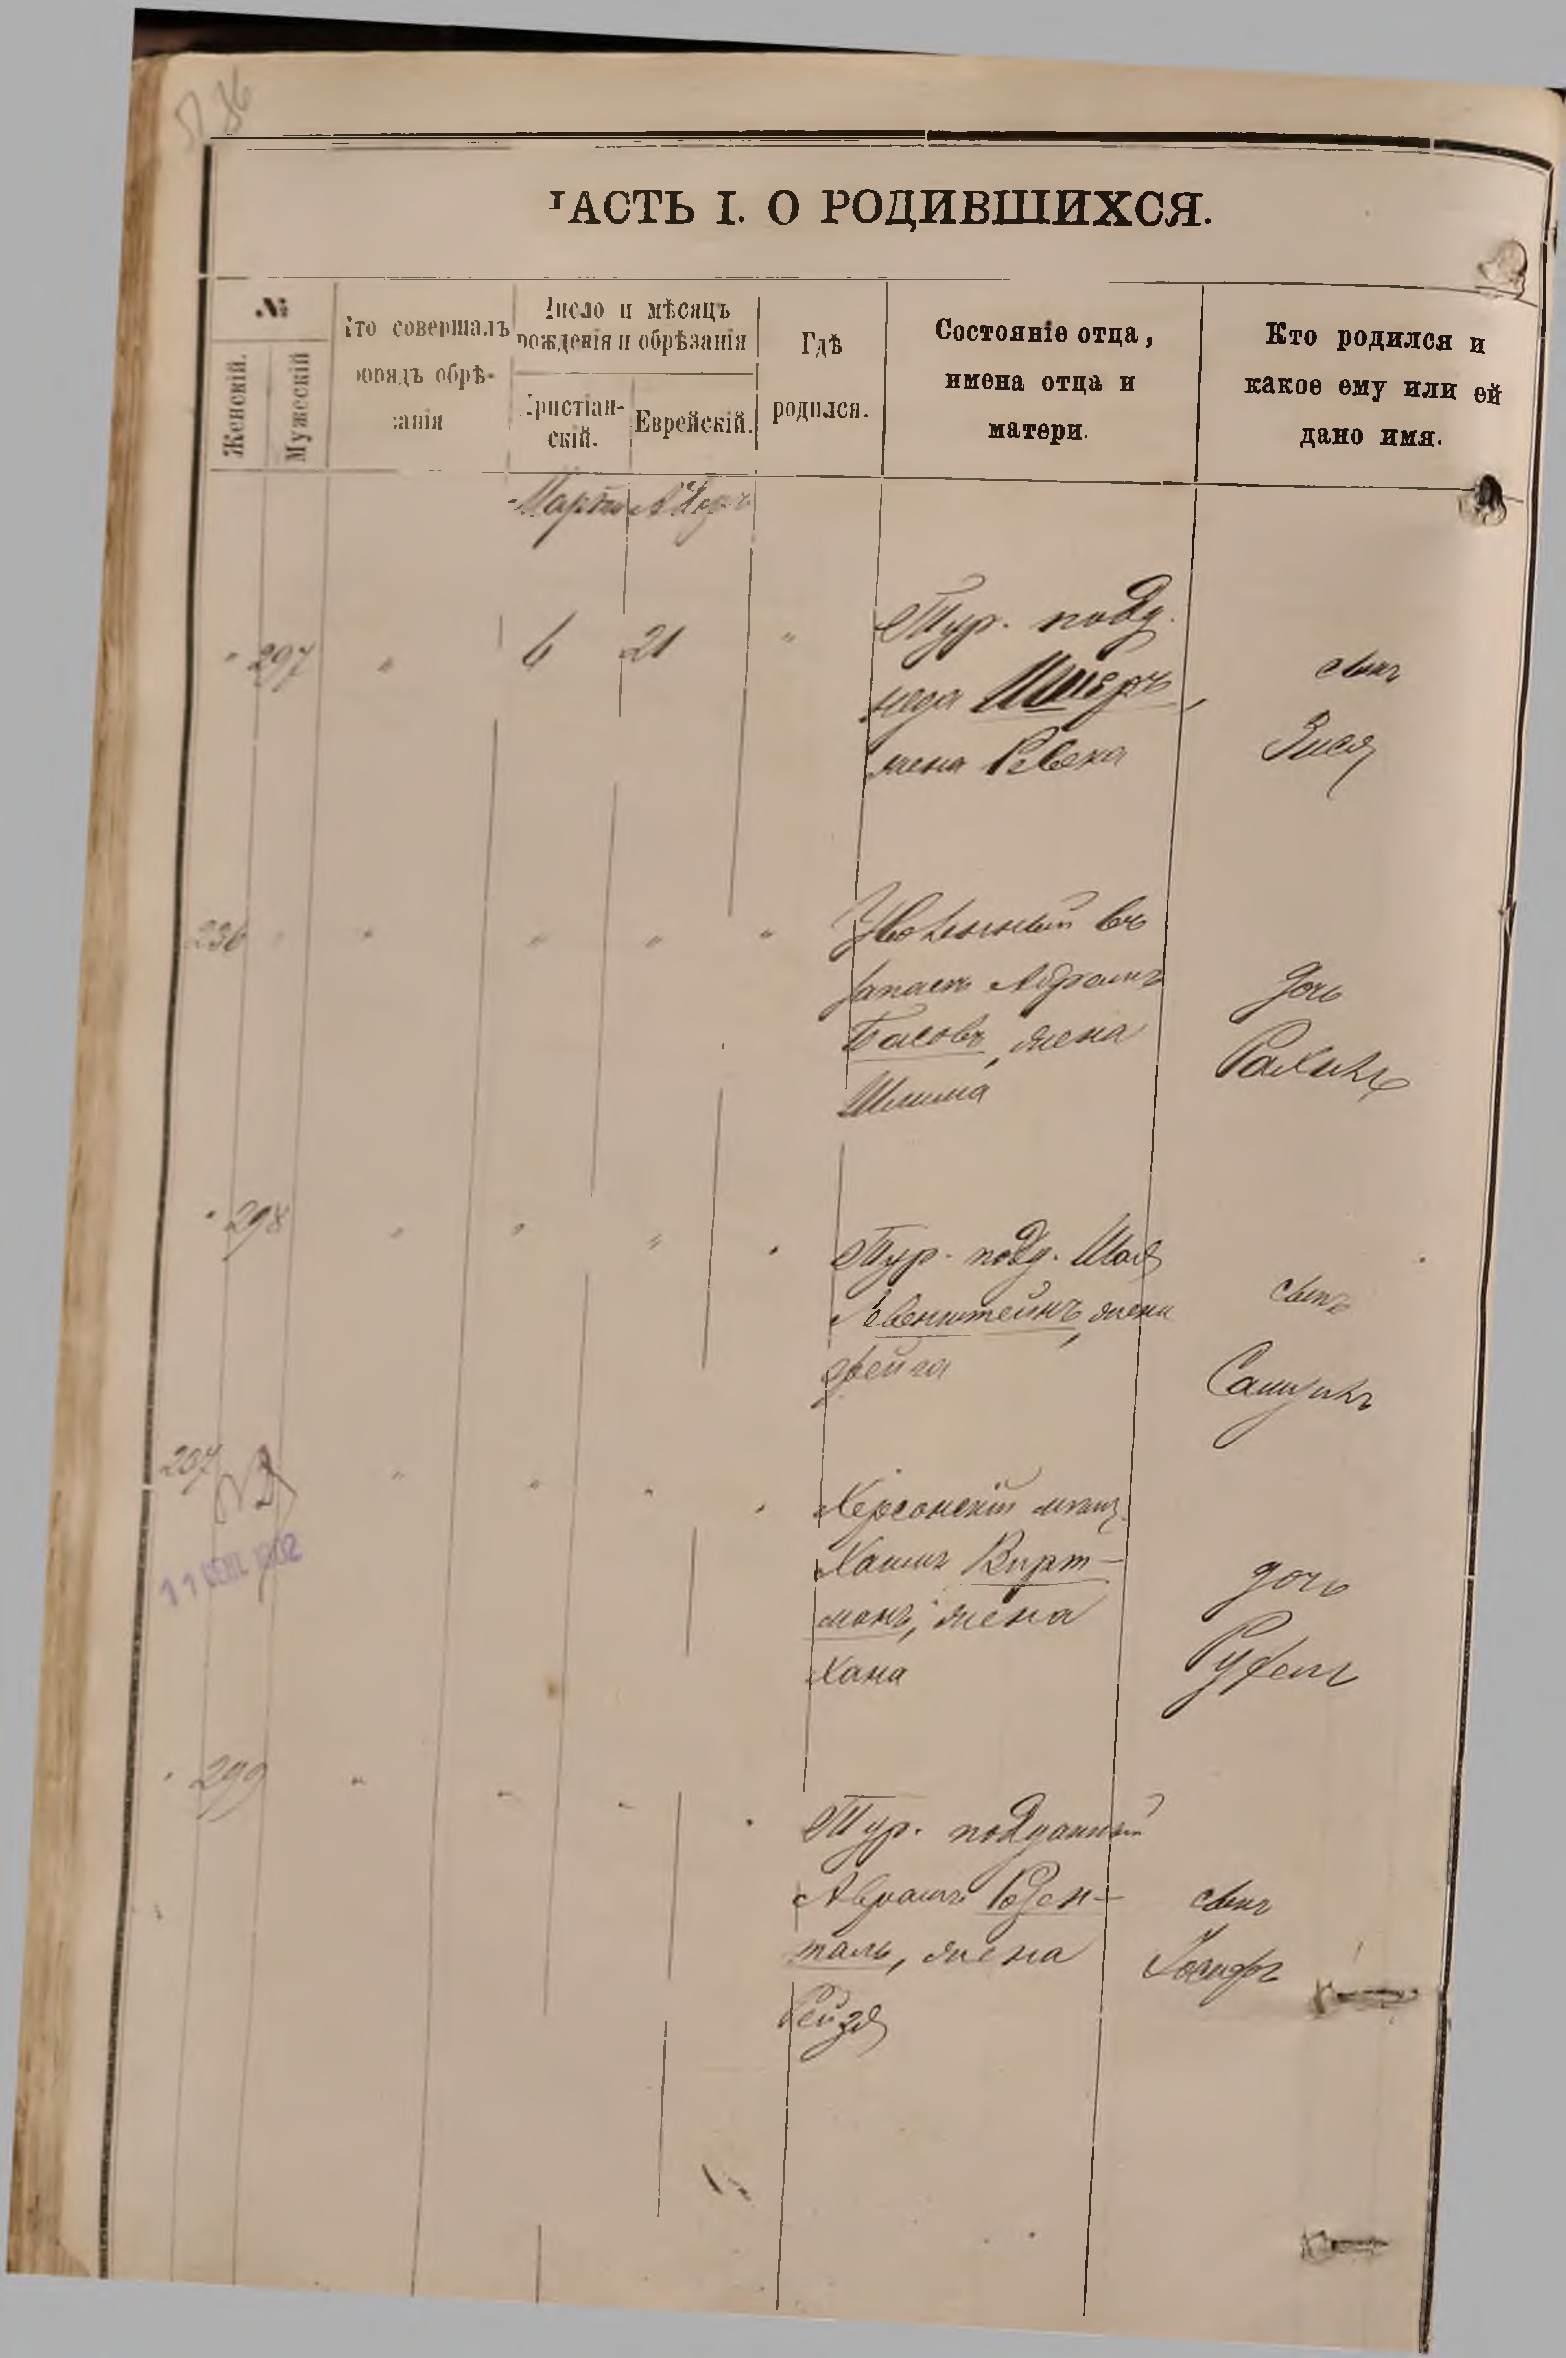 ЧАСТЬ I. О РОДИВШИХСЯ.
№
Женскій.
Мужескій
Кто совершалъ
обрядъ обрѣ-
занія
Число и мѣсяцъ
рожденія и обрѣзанія
Христіан-
скій.
Еврейскій.
Гдѣ
родился.
Состояніе отца,
имена отца и
матери.
Кто родился и
какое ему или ей
дано имя.
Мартъ Адаръ
" 297 " 6 21 "
Тур. подд.
жена Ревека
сынъ
Зися
236 " " " " "
Уволенный въ
запасъ Абрамъ
Басовъ, жена
Шлима
дочь
Рахиль
" 298 " " " "
Тур. подд. Шая
Левенштейнъ, жена
Фейга
сынъ
Самуилъ
237 " " " "
11 СЕН. 1902
Херсонскій мѣщ.
Хаимъ Вирт-
манъ, жена
Хана
дочь
Руфель
" 299 " " " "
Тур. подданный
Авраамъ Розен-
таль, жена
Рейзя
сынъ
Іосифъ